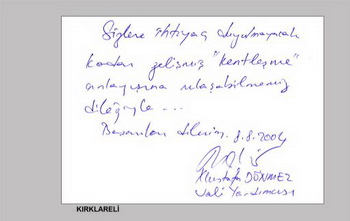 Sizlere ihtiyaç duyulmayacak
kadar gelişmiş "kentleşme"
anlayışına ulaşabilmemiz
dileğiyle ...
Başarılar dilerim. 8.8.2004
Mustafa DÖNMEZ
Vali Yardımcısı
KIRKLARELİ